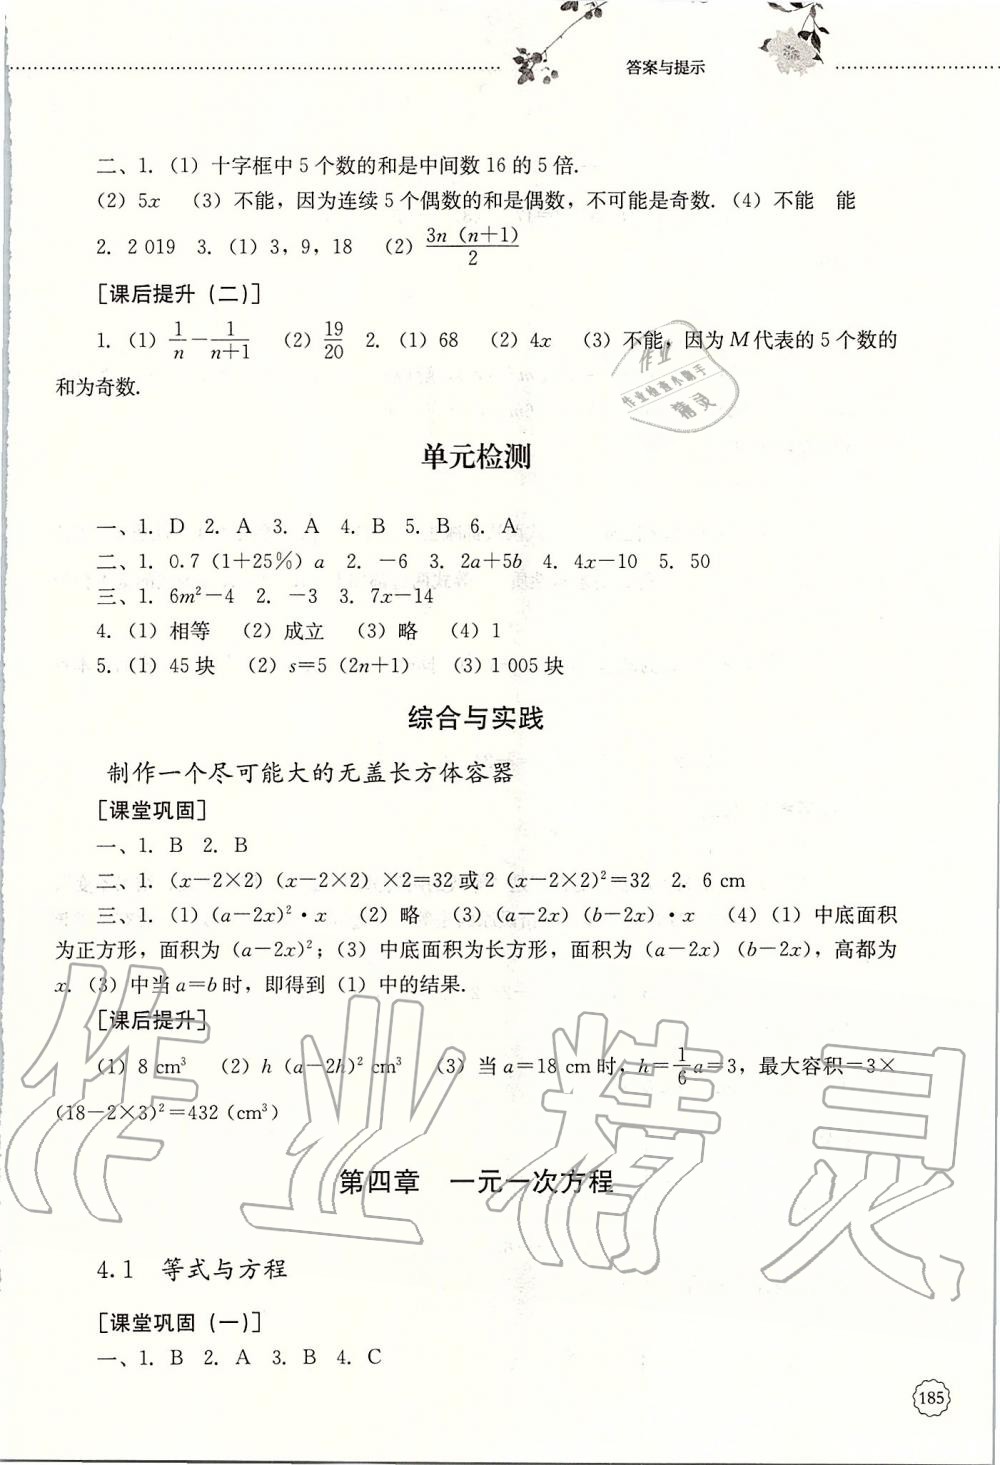 答案与提示
二、1.（1）十字框中 5 个数的和是中间数 16 的 5 倍.
（2）5x （3）不能，因为连续 5 个偶数的和是偶数，不可能是奇数.（4）不能 能
2. 2 019 3.（1）3，9，18 （2）3n（n+1）/2
［课后提升（二）］
1.（1）1/n－1/(n+1) （2）19/20 2.（1）68 （2）4x （3）不能，因为 M 代表的 5 个数的
和为奇数.
作业
作业检查小助手
精灵
单元检测
一、1. D 2. A 3. A 4. B 5. B 6. A
二、1. 0.7（1+25%）a 2. －6 3. 2a+5b 4. 4x－10 5. 50
三、1. 6m²－4 2. －3 3. 7x－14
4.（1）相等 （2）成立 （3）略 （4）1
5.（1）45 块 （2）s=5（2n+1） （3）1 005 块
综合与实践
制作一个尽可能大的无盖长方体容器
［课堂巩固］
一、1. B 2. B
二、1.（x－2×2）（x－2×2）×2=32 或 2（x－2×2）²=32 2. 6 cm
三、1.（1）（a－2x）²·x （2）略 （3）（a－2x）（b－2x）·x （4）（1）中底面积
为正方形，面积为（a－2x）²；（3）中底面积为长方形，面积为（a－2x）（b－2x），高都为
x.（3）中当 a=b 时，即得到（1）中的结果.
［课后提升］
（1）8 cm³ （2）h（a－2h）² cm³ （3）当 a=18 cm 时，h=1/6a=3，最大容积=3×
（18－2×3）²=432（cm³）
作业精灵
第四章 一元一次方程
4.1 等式与方程
［课堂巩固（一）］
一、1. B 2. A 3. B 4. C
185